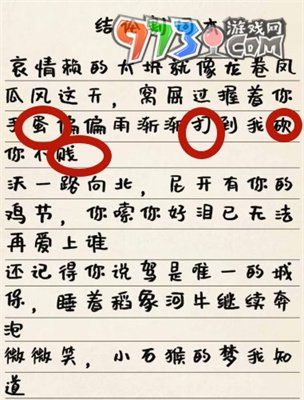 973游戏网
哀情赖的太快就像龙卷风
瓜风这天，窝屈过握着你
手蛋偏偏雨渐渐打到我砍
你不贱
沃一路向北，尼开有你的
鸡节，你嗦你好泪已无法
再爱上谁
还记得你说驾是唯一的城
保，睡着稻象河牛继续奔
泡
微微笑，小石猴的梦我知
道